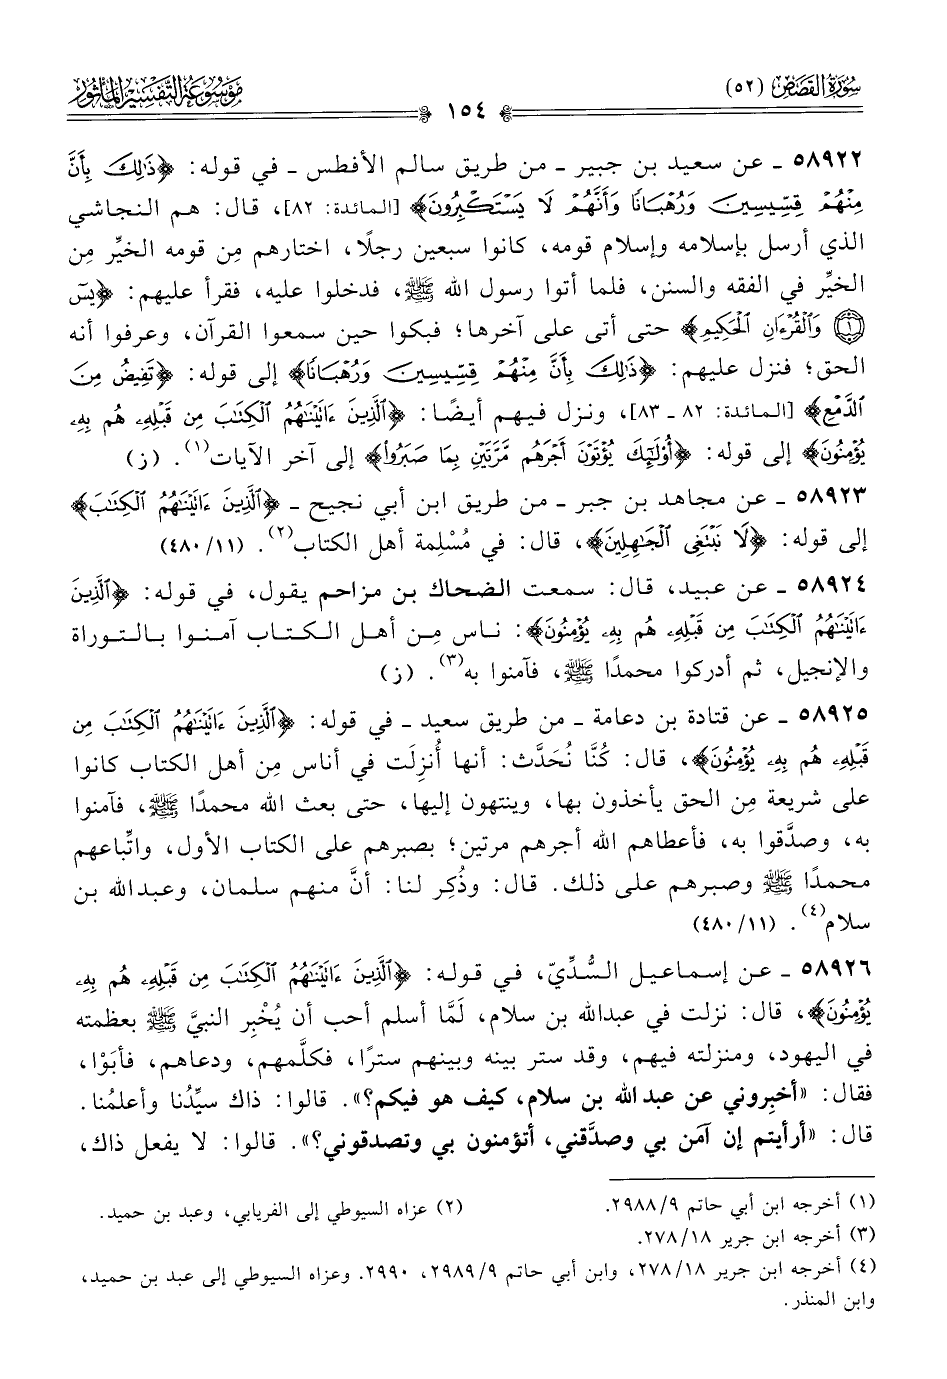 سُورَةُ القَصَصِ (٥٢)
١٥٤
مَوْسُوعَةُ التَّفْسِيْرِ المَأْثُورِ
٥٨٩٢٢ ـ عن سعيد بن جبير ـ من طريق سالم الأفطس ـ في قوله: ﴿ذَٰلِكَ بِأَنَّ
مِنْهُمْ قِسِّيسِينَ وَرُهْبَانًا وَأَنَّهُمْ لَا يَسْتَكْبِرُونَ﴾ [المائدة: ٨٢]، قال: هم النجاشي
الذي أرسل بإسلامه وإسلام قومه، كانوا سبعين رجلًا، اختارهم مِن قومه الخيِّر مِن
الخيِّر في الفقه والسنن، فلما أتوا رسول الله ﷺ، فدخلوا عليه، فقرأ عليهم: ﴿يسٓ
۝١ وَٱلْقُرْءَانِ ٱلْحَكِيمِ﴾ حتى أتى على آخرها؛ فبكوا حين سمعوا القرآن، وعرفوا أنه
الحق؛ فنزل عليهم: ﴿ذَٰلِكَ بِأَنَّ مِنْهُمْ قِسِّيسِينَ وَرُهْبَانًا﴾ إلى قوله: ﴿تَفِيضُ مِنَ
ٱلدَّمْعِ﴾ [المائدة: ٨٢ ـ ٨٣]، ونزل فيهم أيضًا: ﴿ٱلَّذِينَ ءَاتَيْنَٰهُمُ ٱلْكِتَٰبَ مِن قَبْلِهِۦ هُم بِهِۦ
يُؤْمِنُونَ﴾ إلى قوله: ﴿أُوْلَٰٓئِكَ يُؤْتَوْنَ أَجْرَهُم مَّرَّتَيْنِ بِمَا صَبَرُواْ﴾ إلى آخر الآيات(١). (ز)
٥٨٩٢٣ ـ عن مجاهد بن جبر ـ من طريق ابن أبي نجيح ـ ﴿ٱلَّذِينَ ءَاتَيْنَٰهُمُ ٱلْكِتَٰبَ﴾
إلى قوله: ﴿لَا نَبْتَغِى ٱلْجَٰهِلِينَ﴾، قال: في مُسْلِمة أهل الكتاب(٢). (١١/٤٨٠)
٥٨٩٢٤ ـ عن عبيد، قال: سمعت الضحاك بن مزاحم يقول، في قوله: ﴿ٱلَّذِينَ
ءَاتَيْنَٰهُمُ ٱلْكِتَٰبَ مِن قَبْلِهِۦ هُم بِهِۦ يُؤْمِنُونَ﴾: ناس مِن أهل الكتاب آمنوا بالتوراة
والإنجيل، ثم أدركوا محمدًا ﷺ، فآمنوا به(٣). (ز)
٥٨٩٢٥ ـ عن قتادة بن دعامة ـ من طريق سعيد ـ في قوله: ﴿ٱلَّذِينَ ءَاتَيْنَٰهُمُ ٱلْكِتَٰبَ مِن
قَبْلِهِۦ هُم بِهِۦ يُؤْمِنُونَ﴾، قال: كُنَّا نُحَدَّث: أنها أُنزِلَت في أناس مِن أهل الكتاب كانوا
على شريعة مِن الحق يأخذون بها، وينتهون إليها، حتى بعث الله محمدًا ﷺ، فآمنوا
به، وصدَّقوا به، فأعطاهم الله أجرهم مرتين؛ بصبرهم على الكتاب الأول، واتِّباعهم
محمدًا ﷺ وصبرهم على ذلك. قال: وذُكِر لنا: أنَّ منهم سلمان، وعبدالله بن
سلام(٤). (١١/٤٨٠)
٥٨٩٢٦ ـ عن إسماعيل السُّدِّيّ، في قوله: ﴿ٱلَّذِينَ ءَاتَيْنَٰهُمُ ٱلْكِتَٰبَ مِن قَبْلِهِۦ هُم بِهِۦ
يُؤْمِنُونَ﴾، قال: نزلت في عبدالله بن سلام، لَمَّا أسلم أحب أن يُخْبِر النبيَّ ﷺ بعظمته
في اليهود، ومنزلته فيهم، وقد ستر بينه وبينهم سترًا، فكلَّمهم، ودعاهم، فأبَوْا،
فقال: «أخبِروني عن عبد الله بن سلام، كيف هو فيكم؟». قالوا: ذاك سيِّدُنا وأعلمُنا.
قال: «أرأيتم إن آمَن بي وصدَّقني، أتؤمنون بي وتصدقوني؟». قالوا: لا يفعل ذاك،
(١) أخرجه ابن أبي حاتم ٩/٢٩٨٨.
(٢) عزاه السيوطي إلى الفريابي، وعبد بن حميد.
(٣) أخرجه ابن جرير ١٨/٢٧٨.
(٤) أخرجه ابن جرير ١٨/٢٧٨، وابن أبي حاتم ٩/٢٩٨٩، ٢٩٩٠. وعزاه السيوطي إلى عبد بن حميد،
وابن المنذر.